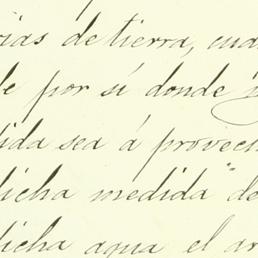 ias de tierra, cua
e por sí donde y
ida sea á provech
dicha medida "de
dicha agua el ar